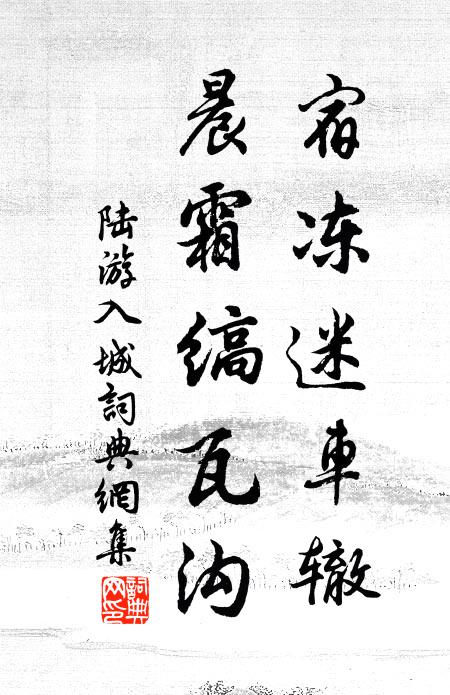 宿冻迷车辙
晨霜缟瓦沟
陆游入城詞典網集
詞典网印